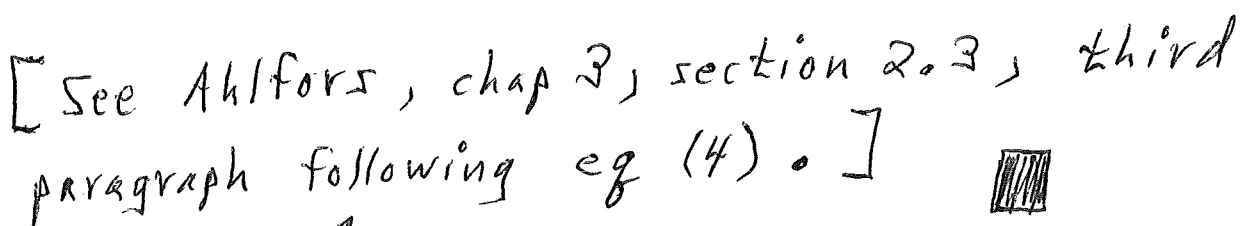 [See Ahlfors, chap 3, section 2.3, third
paragraph following eq (4).]